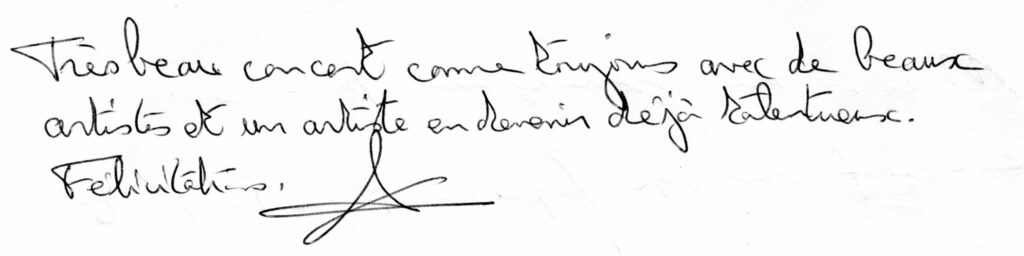 Très beau concert comme toujours avec de beaux
artistes et un artiste en devenir déjà talentueux.
Félicitations.